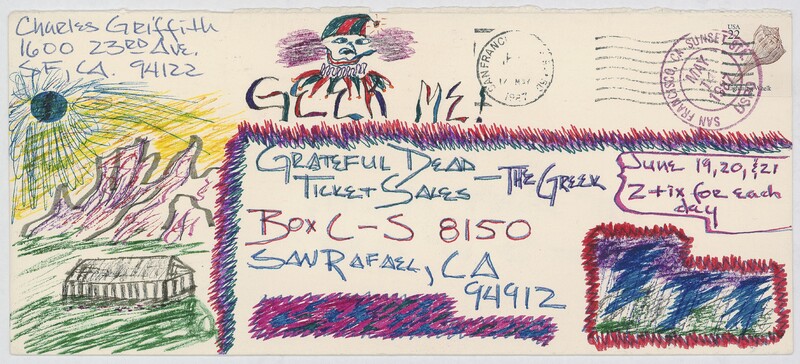 Charles Griffith
1600 23RD Ave.
SF, CA. 94122
GEEK ME!
SAN FRANCI
1987
USA
22
SAN FRANCISCO, CA SUNSET STA
MAY
1987
GRATEFUL DEAD
TICKET SALES — THE GREEK
BOX C-S 8150
SAN RAFAEL, CA
94912
June 19, 20, & 21
2 tix for each
day